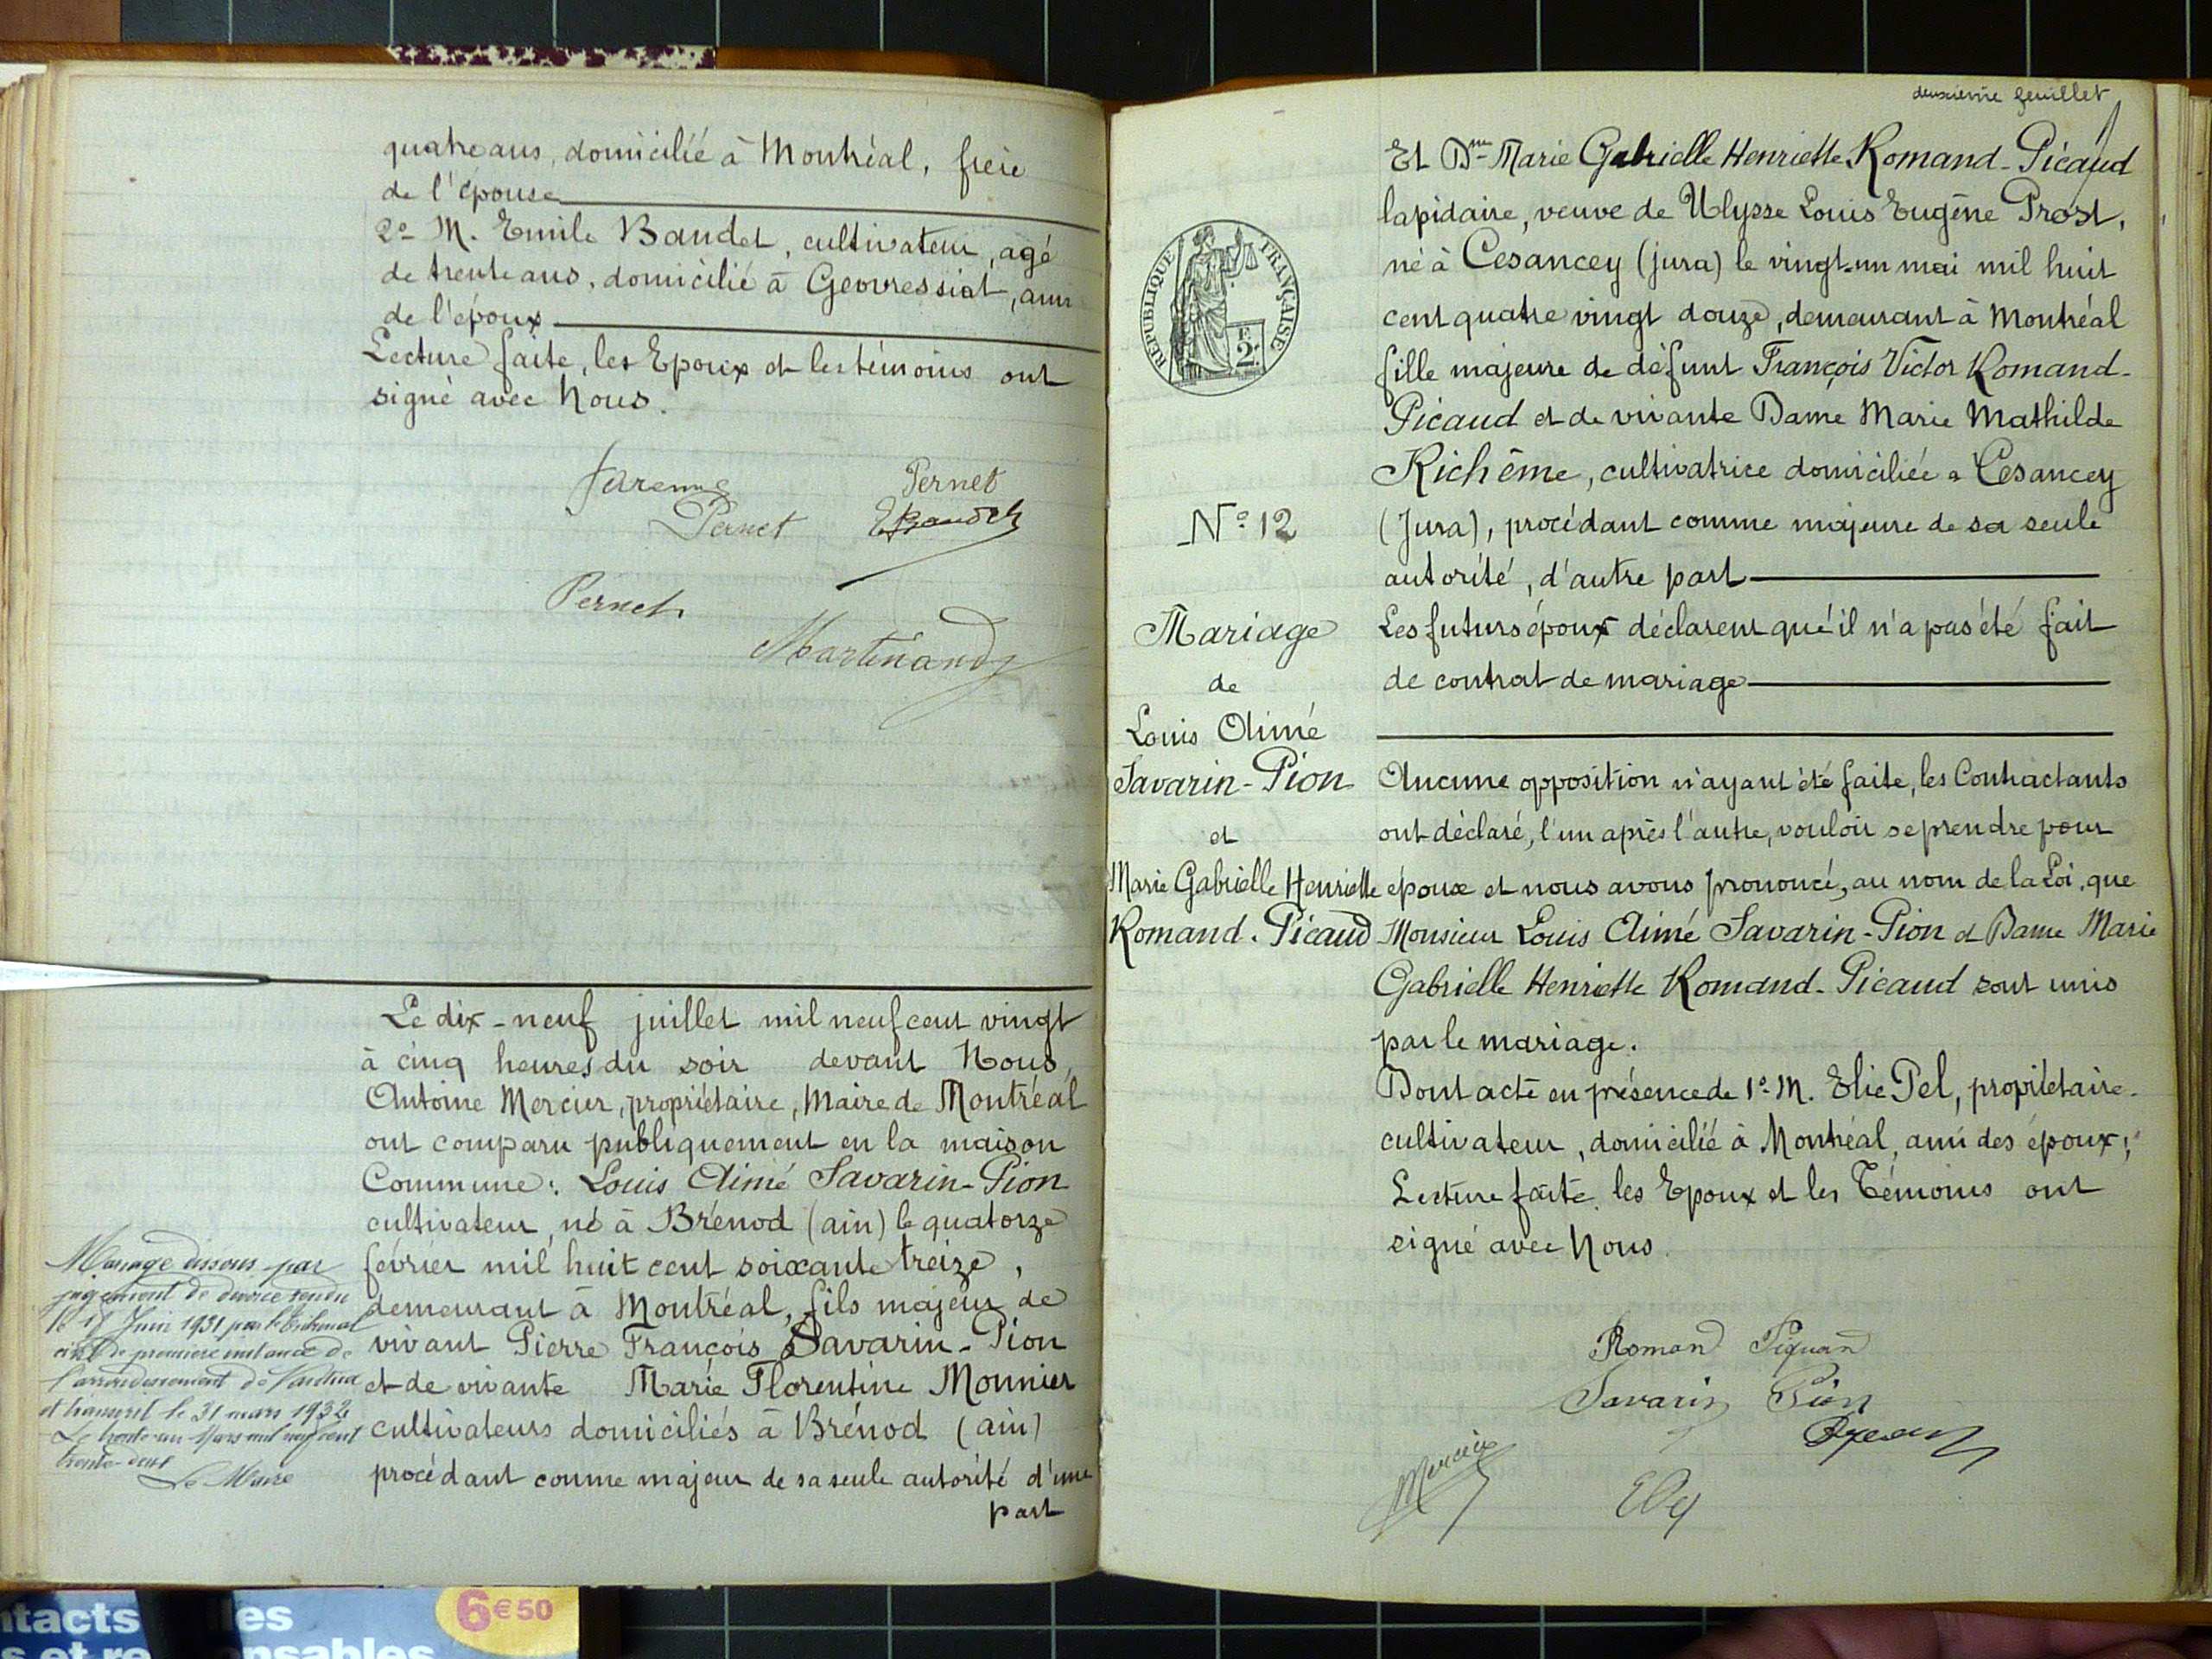 quatre ans, domicilié à Montréal, frère
de l'épouse
2º M. Emile Baudet, cultivateur, agé
de trente ans, domicilié à Geovressiat, ami
de l'époux
Lecture faite, les Epoux et les témoins ont
signé avec Nous.
Pernet
Pernet EBaudet
Pernet
Martinand
Le dix-neuf juillet mil neuf cent vingt
à cinq heures du soir devant Nous,
Antoine Mercier, propriétaire, Maire de Montréal
ont comparu publiquement en la maison
Commune: Louis Aimé Savarin-Pion
cultivateur, né à Brénod (ain) le quatorze
février mil huit cent soixante treize,
demeurant à Montréal, fils majeur de
vivant Pierre François Savarin-Pion
et de vivante Marie Florentine Monnier
cultivateurs domiciliés à Brénod (ain)
procédant comme majeur de sa seule autorité d'une
part
Mariage dissous par
jugement de divorce rendu
le Juin 1931 par le tribunal
civil de première instance de
l'arrondissement de Nantua
et transcrit le 31 mars 1932
Le trente-un Mars mil neuf cent
trente-deux
Le Maire
deuxième feuillet
Et Dme Marie Gabrielle Henriette Romand-Picaud
lapidaire, veuve de Ulysse Louis Eugène Prost,
né à Cesancey (jura) le vingt-un mai mil huit
cent quatre vingt douze, demeurant à Montréal
fille majeure de défunt François Victor Romand-
Picaud et de vivante Dame Marie Mathilde
Richême, cultivatrice domiciliée a Cesancey
(Jura), procédant comme majeure de sa seule
autorité, d'autre part
Les futurs époux déclarent qu'il n'a pas été fait
de contrat de mariage
Aucune opposition n'ayant été faite, les Contractants
ont déclaré, l'un après l'autre, vouloir se prendre pour
époux et nous avons prononcé, au nom de la Loi, que
Monsieur Louis Aimé Savarin-Pion et Dame Marie
Gabrielle Henriette Romand-Picaud sont unis
par le mariage.
Dont acte en présence de 1º M. Elie Pel, propriétaire-
cultivateur, domicilié à Montréal, ami des époux;
Lecture faite, les Epoux et les Témoins ont
signé avec Nous.
Roman Piquan
Savarin Pion
Mercier
RÉPUBLIQUE FRANÇAISE
2F.
Nº 12
Mariage
de
Louis Aimé
Savarin-Pion
et
Marie Gabrielle Henriette
Romand-Picaud
ntacts les
s et re nsables
6€50